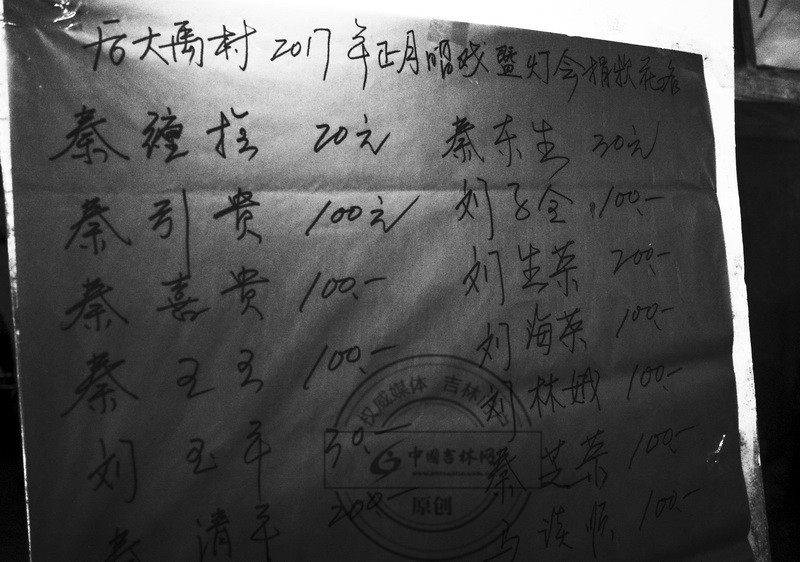 后大禹村 2017年正月唱戏暨灯会捐款花名
秦缠拴 20元
秦引贵 100元
秦喜贵 100.-
秦玉玉 100.-
刘玉平 30.-
秦清平 200.-
秦东生 30元
刘子全 100.-
刘生荣 200.-
刘海英 100.-
刘林娥 100.-
秦芝荣 100.-
100.-
权威媒体 吉林
中国吉林网
原创